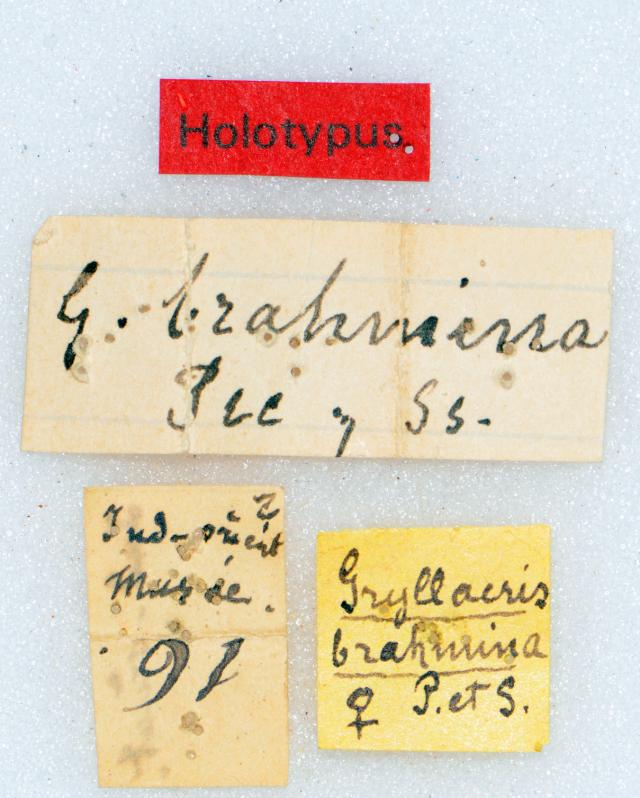 Holotypus.
G. brahmina
Pic y Ss.
Ind-orient
Musée.
91
Gryllacris
brahmina
♀ P. et S.